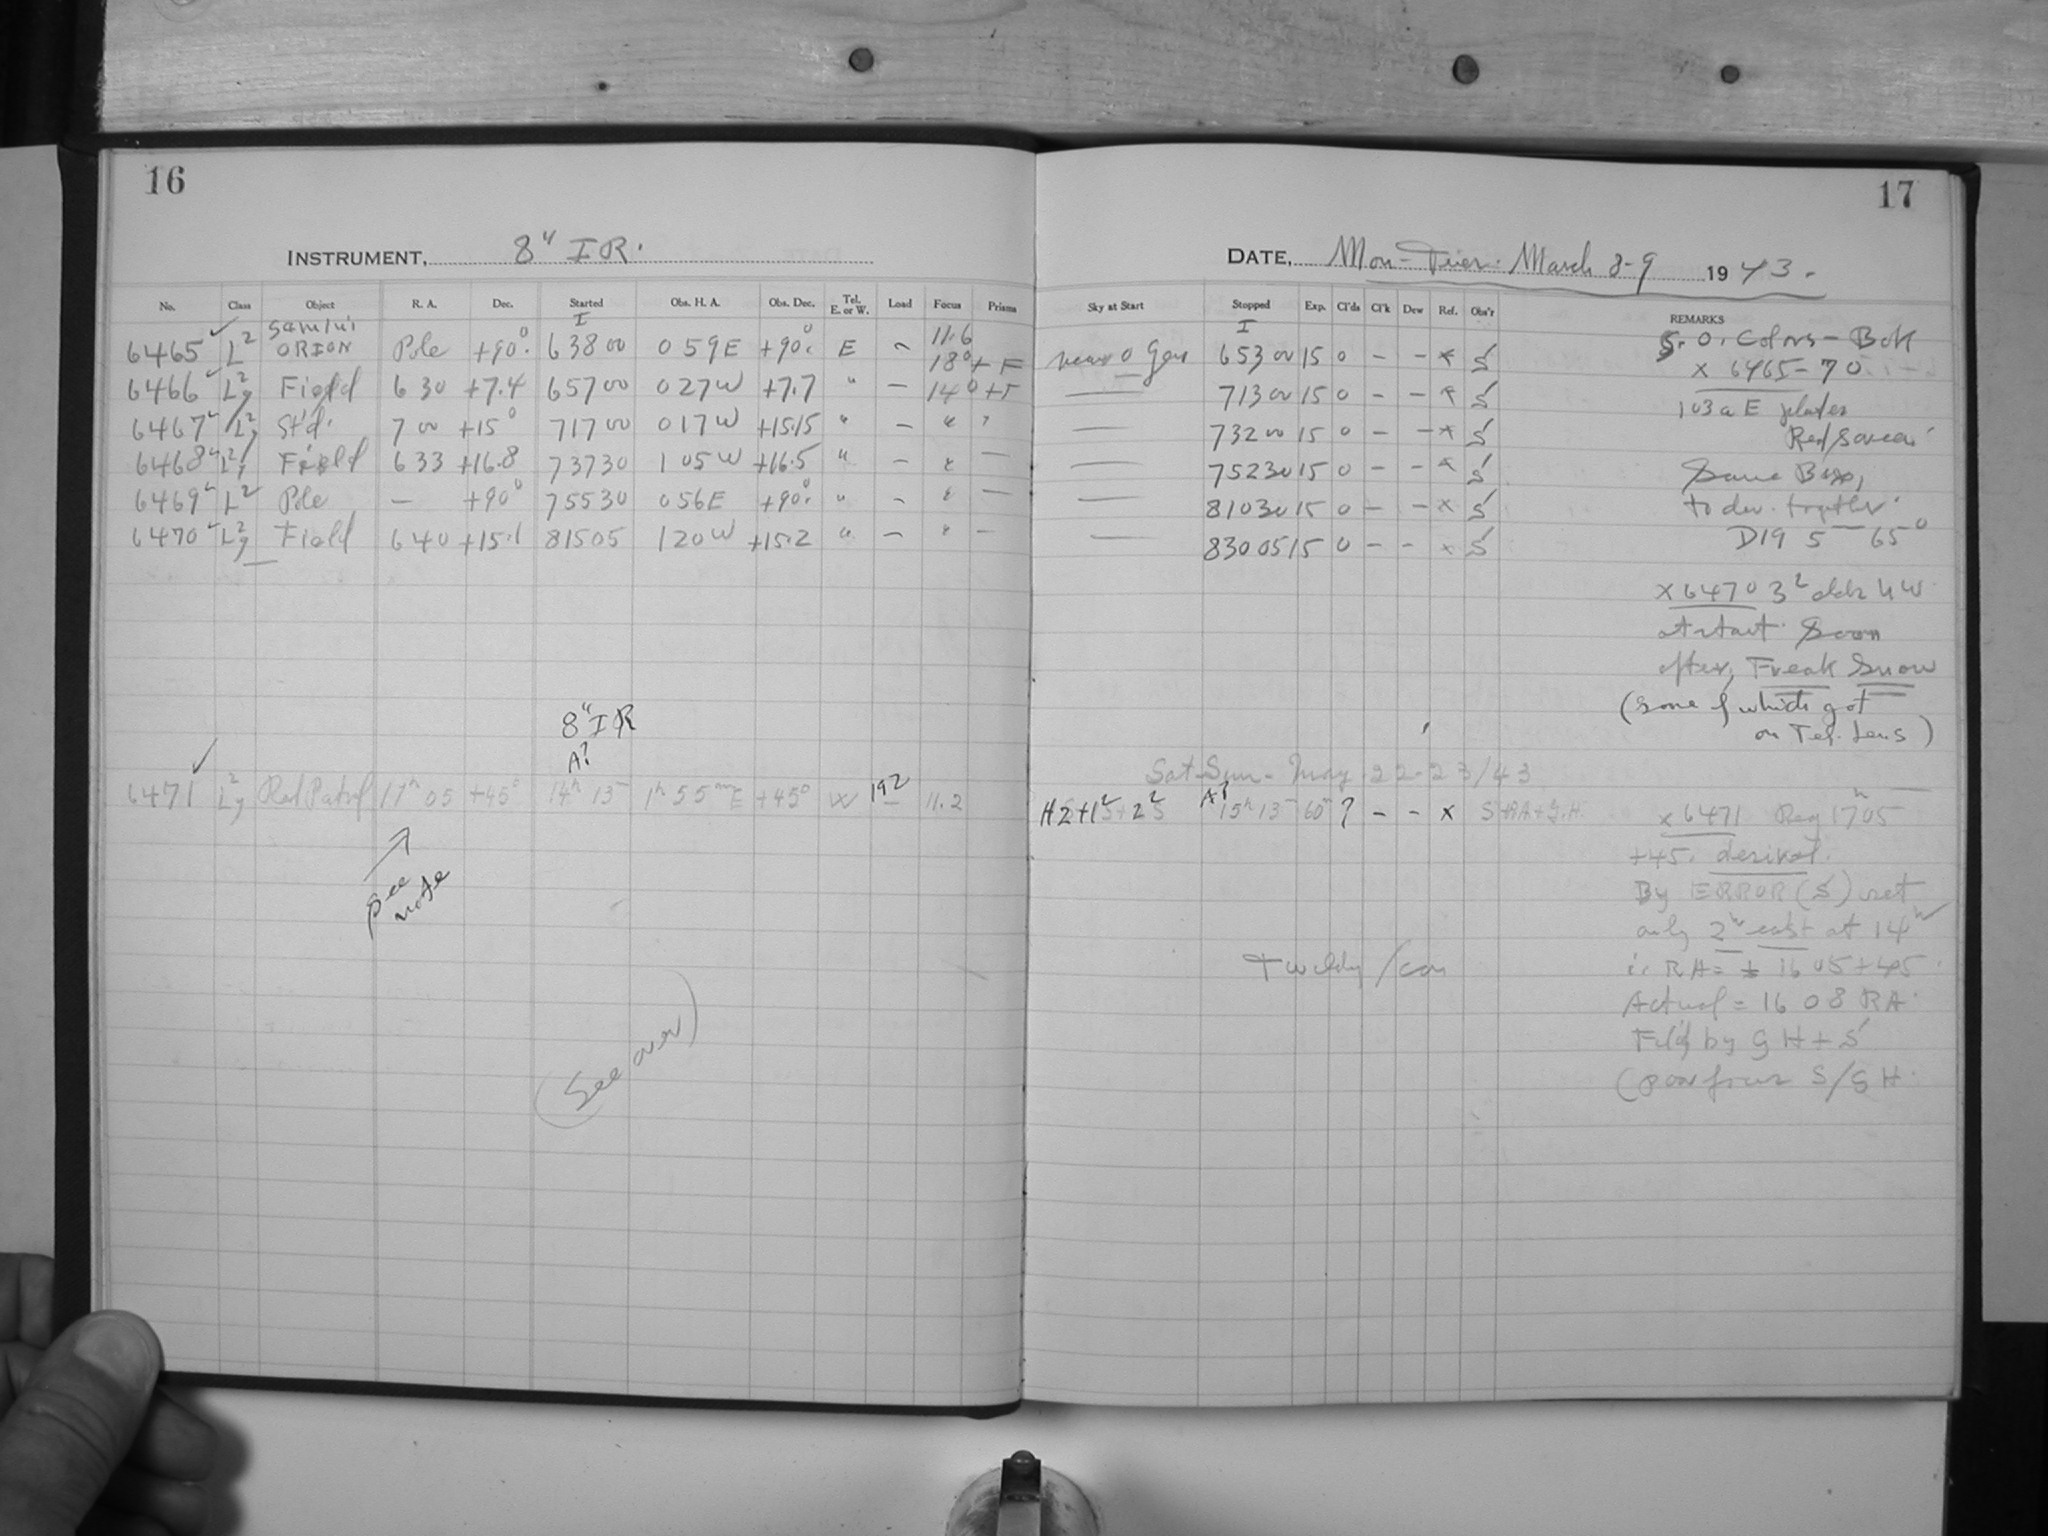 16
INSTRUMENT, 8" IR.
No. Class Object R. A. Dec. Started Obs. H. A. Obs. Dec. Tel. E. or W. Load Focus Prisms
I
6465 ✓ L2 Gemini ORION Pole +90°. 63800 059E +90°. E – 11.6 18° + F
6466 ✓ L2y Field 6 30 +7.4 65700 027W +7.7 " – 14° + F
6467 ✓ L2y St'd. 7 00 +15° 71700 017W +15.15 " – " "
6468 ✓ L2y Field 6 33 +16.8 73730 105W +16.5 " – " –
6469 ✓ L2 Pole – +90° 75530 056E +90°. " – " –
6470 ✓ L2y Field 640 +15.1 81505 120W +15.2 " – " –
8" IR
A?
6471 ✓ L2y Red Patrol 17h 05 +45° 14h 13m 1h 55m E +45° W 192 11.2
See note
(See over)
17
DATE, Mon-Tues. March 8-9 1943.
Sky at Start Stopped Exp. Cl'ds Cl'k Dew Ref. Obs'r REMARKS
I
65300 15 0 – – x S
71300 15 0 – – x S
73200 15 0 – – x S
75230 15 0 – – x S
81030 15 0 – – x S
830 05 15 0 – – x S
S. O. Colors – Bok
x 6465-70
103a E plates
Red Screen
Same Box,
to dev. together.
D19 5m 65°
x 6470 3
at start. Soon
after, Freak Snow
(some of which got
on Tel. Lens)
Sat-Sun- May 22-23/43
A?
15h 13m 60m ? – – x S+RA+G.H.
x 6471 Reg 17h05
+45. desired.
By ERROR (S) set
only 2h east at 14h
i. RA = 16 05 +45.
Actual = 16 08 RA.
by GH + S
(poor focus S/GH.